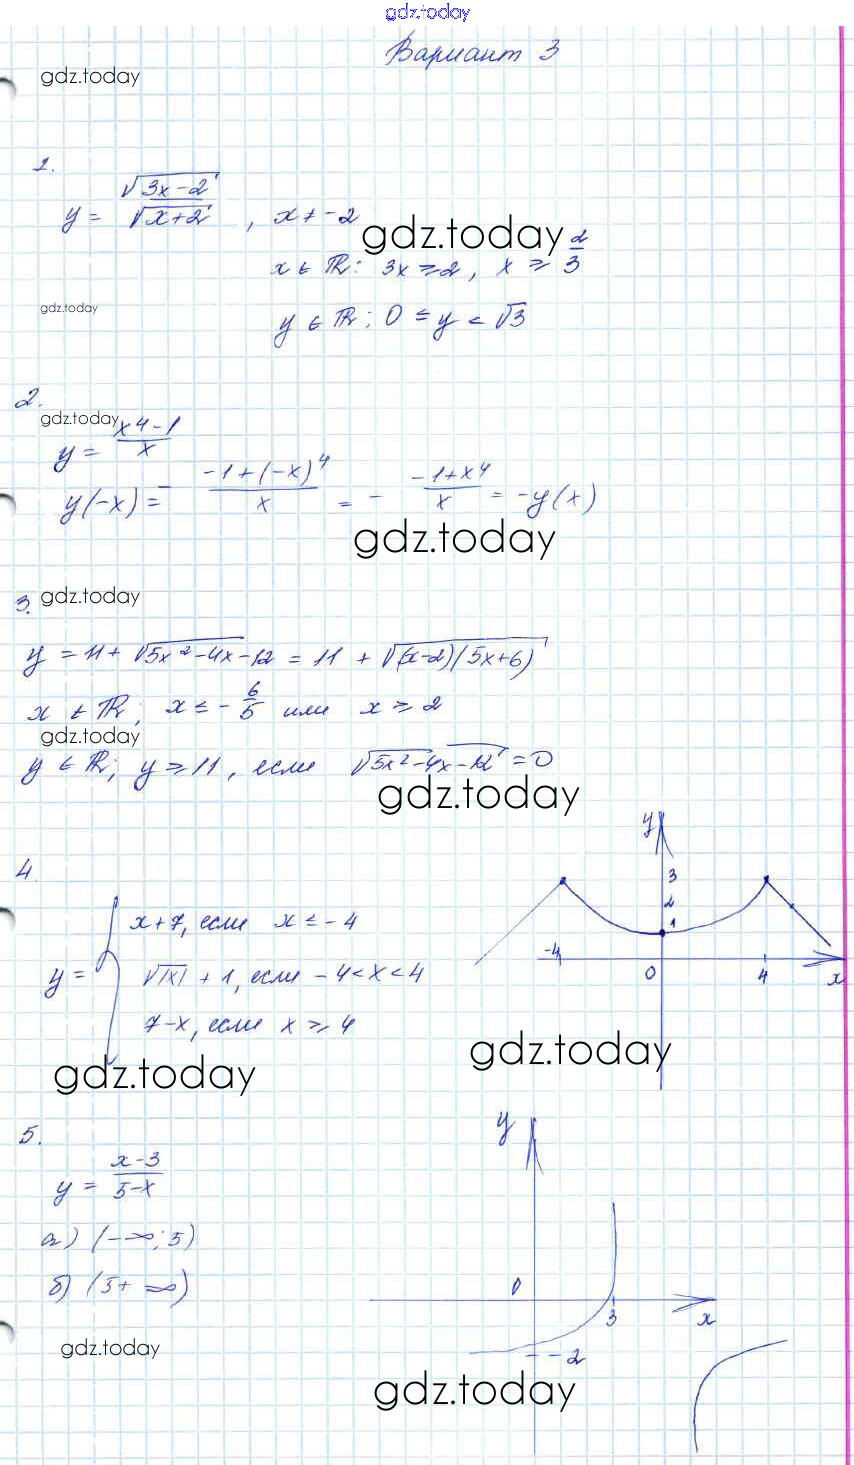 gdz.today
Вариант 3
gdz.today
1.
y = √(3x-2) / √(x+2) , x ≠ -2
gdz.today
x ∈ R: 3x ≥ 2, x ≥ 2/3
gdz.today
y ∈ R; 0 ≤ y < √3
2.
gdz.today
y = (x4-1)/x
y(-x) = - (-1+(-x)^4)/x = - (-1+x^4)/x = -y(x)
gdz.today
3.
gdz.today
y = 11 + √(5x²-4x-12) = 11 + √((x-2)(5x+6))
x ∈ R; x ≤ -6/5 или x ≥ 2
gdz.today
y ∈ R; y ≥ 11, если √(5x²-4x-12) = 0
gdz.today
4.
x+7, если x ≤ -4
y = { √|x| + 1, если -4 < x < 4
7-x, если x ≥ 4
y
3
2
1
-4
0
4
x
gdz.today
gdz.today
5.
y = (x-3)/(5-x)
а) (-∞; 5)
б) (5+ ∞)
y
0
3
x
-2
gdz.today
gdz.today